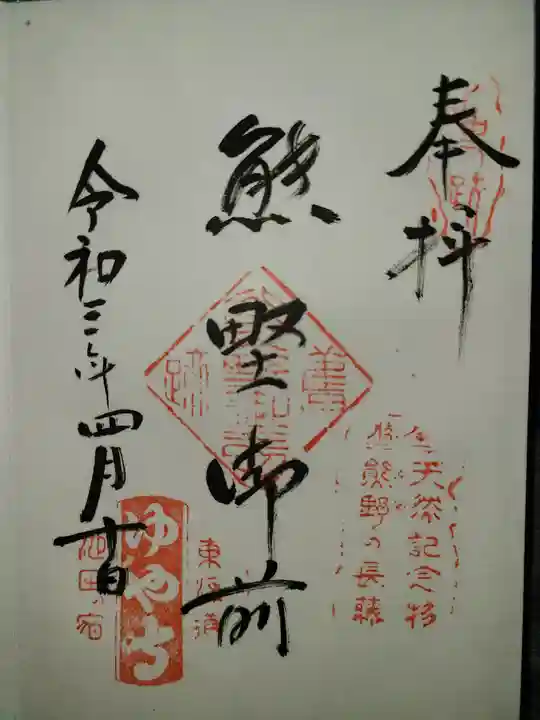 奉拝
天然記念物
熊野の長藤
熊野御前
東海道
ゆや寺
池田の宿
令和三年四月十日